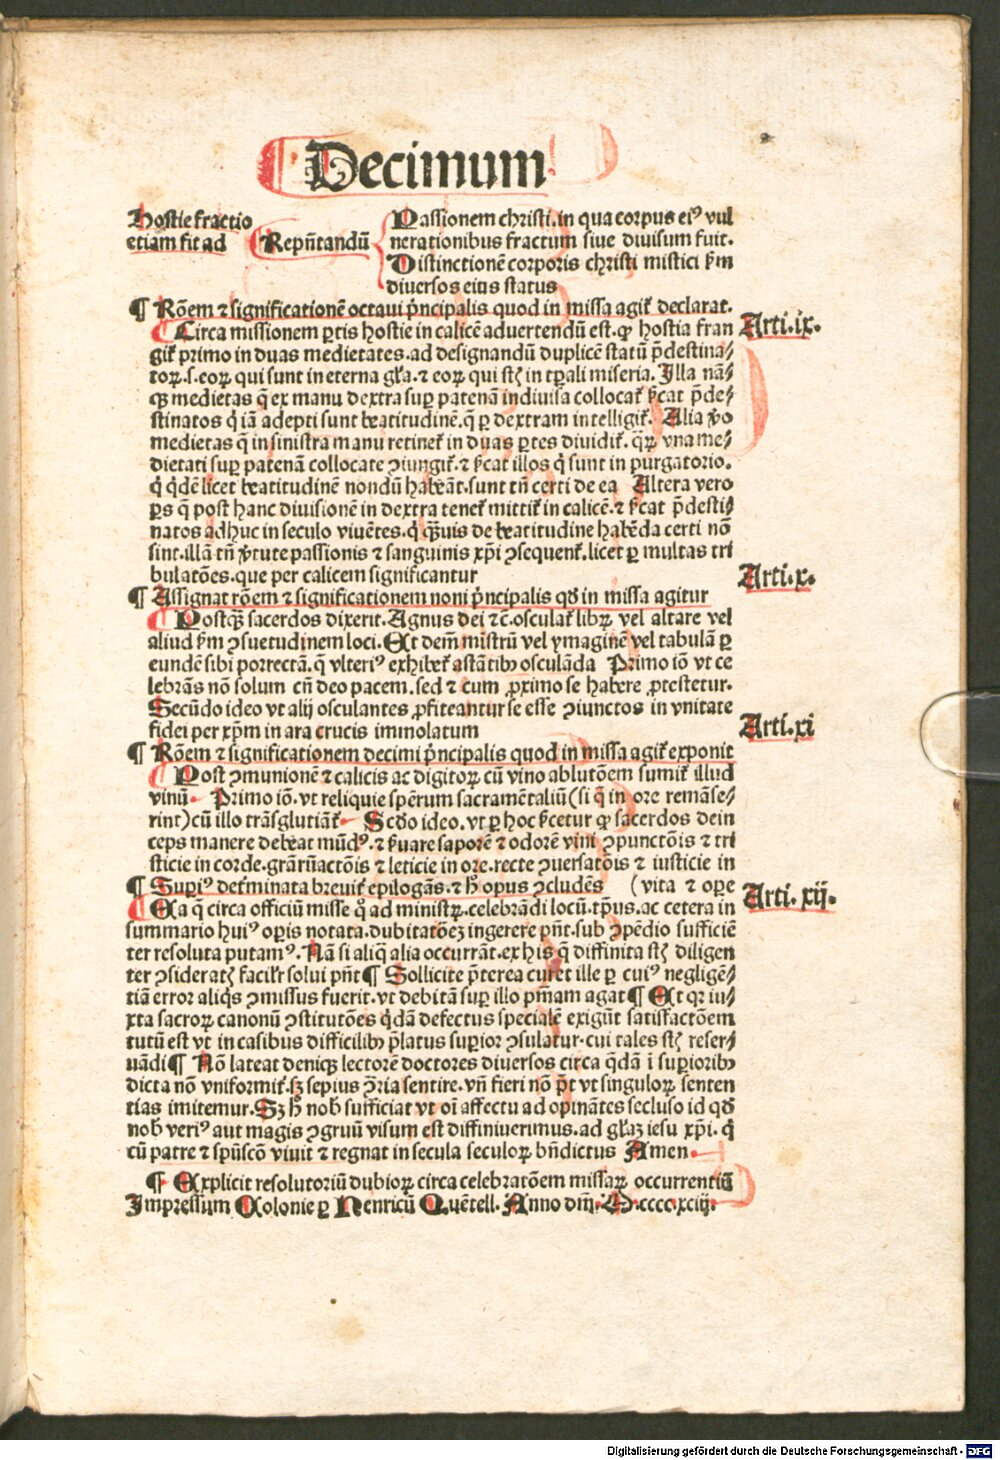 Decimum
Hostie fractio
etiam fit ad
Repn̄tandū
Passionem christi. in qua corpus eiꝰ vul
nerationibus fractum siue diuisum fuit.
Distinctionē corporis christi mistici ẜm
diuersos eius status
¶ Rōem ⁊ significationē octaui p̄ncipalis quod in missa agit᷑ declarat.
Arti.ix.
Circa missionem ꝑtis hostie in calicē aduertendū est. ꝙ hostia fran
git᷑ primo in duas medietates. ad designandū duplicē statū p̄destina⸗
toꝝ. s. eoꝝ qui sunt in eterna gr̄a. ⁊ eoꝝ qui st̄ in tꝑali miseria. Illa nā⸗
qꝫ medietas q̄ ex manu dextra suꝑ patenā indiuisa collocat᷑ ẜcat p̄de⸗
stinatos q̇ iā adepti sunt beatitudinē. q̄ ꝑ dextram intelligit᷑. Alia v̄o
medietas q̄ in sinistra manu retinet᷑ in duas ꝑtes diuidit᷑. q̄ꝝ vna me⸗
dietati suꝑ patenā collocate ꝯiungit᷑. ⁊ ẜcat illos q̇ sunt in purgatorio.
q̇ q̇dē licet beatitudinē nondū habeāt. sunt tn̄ certi de ea Altera vero
ꝑs q̄ post hanc diuisionē in dextra tenet᷑ mittit᷑ in calicē. ⁊ ẜcat p̄desti⸗
natos adhuc in seculo viuētes. q̇ qꝫuis de beatitudine habēda certi nō
sint. illā tn̄ v̄tute passionis ⁊ sanguinis xp̄i ꝯsequent᷑. licet ꝑ multas tri
bulatōes. que per calicem significantur
Arti.x.
¶ Assignat rōem ⁊ significationem noni p̄ncipalis qd̄ in missa agitur
Postqꝫ sacerdos dixerit. Agnus dei ⁊c̄. osculat᷑ libꝝ vel altare vel
aliud ẜm ꝯsuetudinem loci. Et dem̄ mistrū vel ymaginē vel tabulā ꝑ
eundē sibi porrectā. q̄ vlteriꝰ exhibet᷑ astātibꝫ osculāda Primo iō vt ce
lebrās nō solum cū deo pacem. sed ⁊ cum ꝓximo se habere ꝓtestetur.
Secūdo ideo vt alij osculantes ꝓfiteantur se esse ꝯiunctos in vnitate
fidei per xp̄m in ara crucis immolatum
Arti.xi
¶ Rōem ⁊ significationem decimi p̄ncipalis quod in missa agit᷑ exponit
Post ꝯmunionē ⁊ calicis ac digitoꝝ cū vino ablutōem sumit᷑ illud
vinū Primo iō. vt reliquie spērum sacramētaliū (si q̄ in ore remāse⸗
rint) cū illo trāsglutiāt᷑ Scd̄o ideo. vt ꝑ hoc ẜcetur ꝙ sacerdos dein
ceps manere debeat mūdꝰ. ⁊ ẜuare saporē ⁊ odorē vini ꝯpunctōis ⁊ tri
sticie in corde. grār̄actōis ⁊ leticie in ore. recte ꝯuersatōis ⁊ iusticie in
¶ Suꝑiꝰ det᷑minata breuit᷑ epilogās. ⁊ h̄ opus ꝯcludēs (vita ⁊ oꝑe
Arti.xij.
Ea q̄ circa officiū misse q̊ ad ministꝝ. celebrādi locū. tp̄us. ac cetera in
summario huiꝰ oꝑis notata. dubitatōeꝫ ingerere pn̄t. sub ꝯpēdio sufficiē
ter resoluta putamꝰ. Nā si aliq̄ alia occurrāt. ex his q̄ diffinita st̄ diligen
ter ꝯsiderat᷑ facilr̄ solui pn̄t ¶ Sollicite p̄terea curet ille ꝑ cuiꝰ negligē⸗
tiā error aliq̇s ꝯmissus fuerit. vt debitā suꝑ illo pn̄iam agat ¶ Et qꝛ iu⸗
xta sacroꝝ canonū ꝯstitutōes q̇dā defectus specialē exigūt satisfactōem
tutū est vt in casibus difficilibꝫ p̄latus suꝑior ꝯsulatur. cui tales st̄ reser⸗
uādi ¶ Nō lateat deniqꝫ lectorē doctores diuersos circa q̇dā ī suꝑioribꝫ
dicta nō vniformit᷑. sꝫ sepius ꝯ̄ria sentire. vn̄ fieri nō p̄t vt singuloꝝ senten
tias imitemur. Sꝫ h̄ nob̄ sufficiat vt oī affectu ad opinātes secluso id qd̄
nob̄ veriꝰ aut magis ꝯgruū visum est diffiniuerimus. ad gl̄iaꝫ iesu xp̄i. q̇
cū patre ⁊ spūsc̄o viuit ⁊ regnat in secula seculoꝝ bn̄dictus Amen
¶ Explicit resolutoriū dubioꝝ circa celebratōem missaꝝ occurrentiū
Impressum Colonie ꝑ Henricū Quētell. Anno dm̄. M.cccc.xciij.
Digitalisierung gefördert durch die Deutsche Forschungsgemeinschaft - DFG